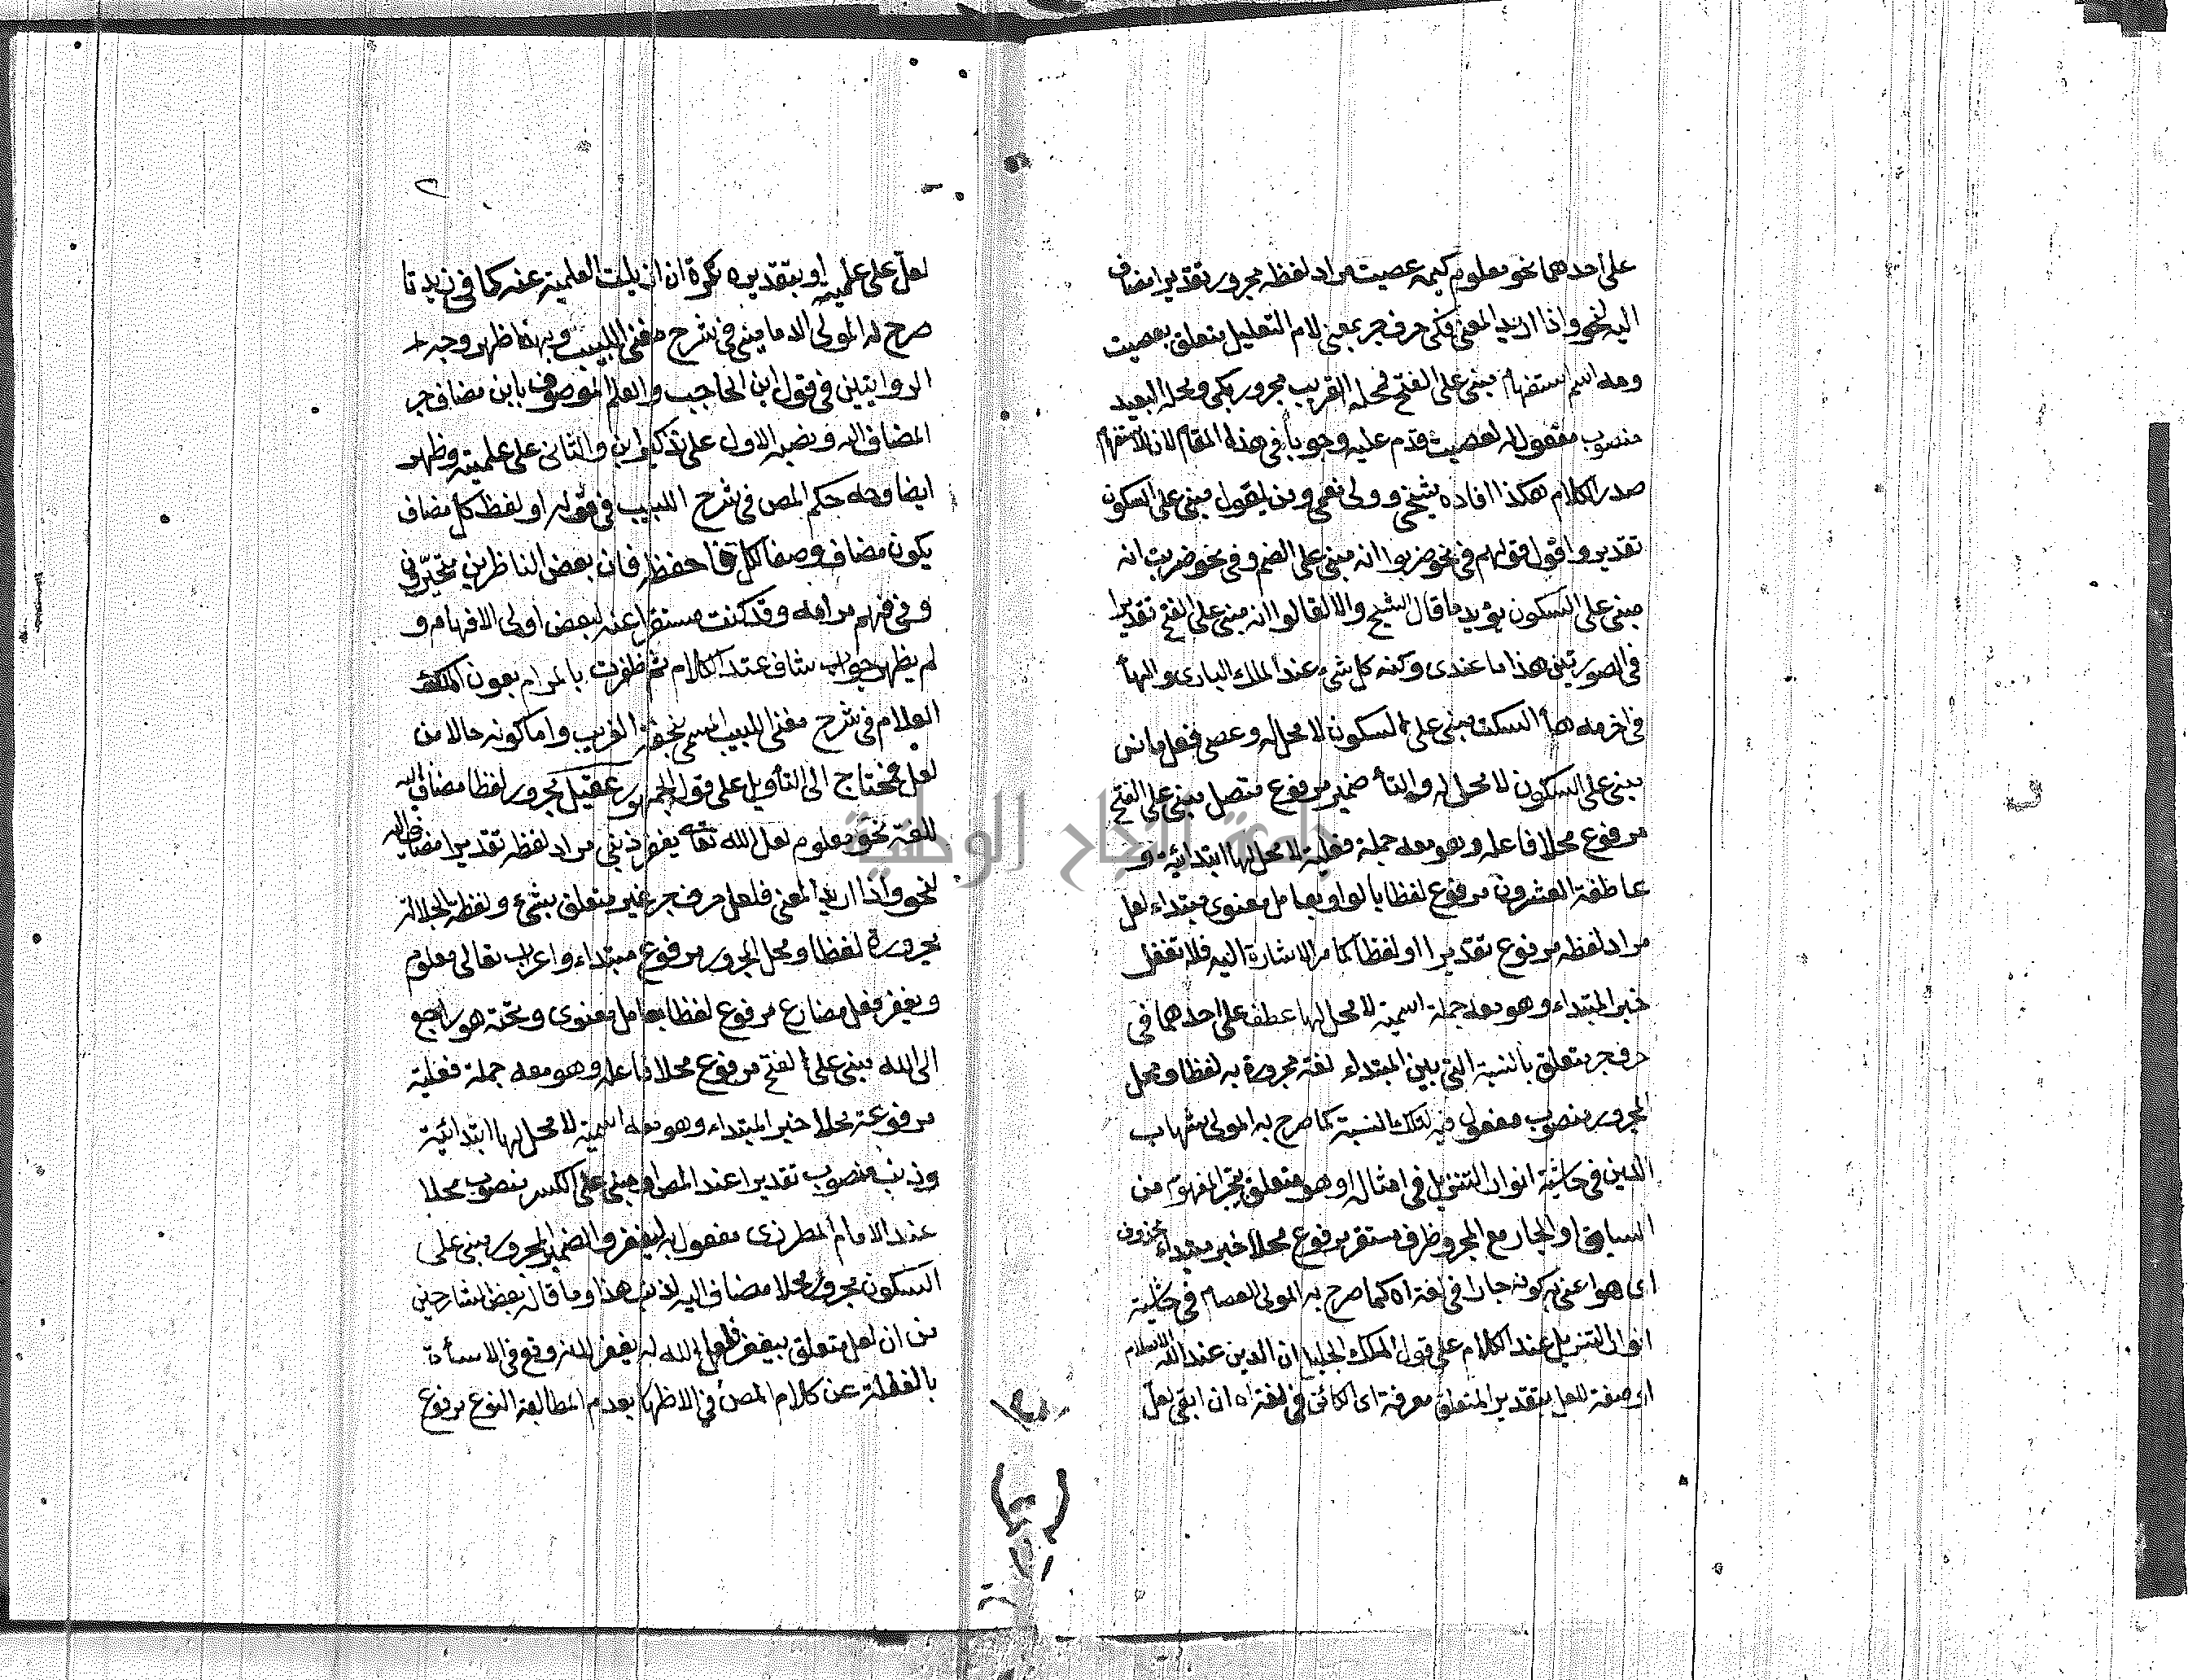 على احدهما نحو معلوم كيمه عصيت مراد لفظه مجرور تقديرا مضاف
اليه لنحو واذا اريد المعنى فكى حرف جر بمعنى لام التعليل متعلق بعصيت
ومه اسم استفهام مبنى على الفتح فمحله القريب مجرور بكى ومحله البعيد
منصوب مفعول له لعصيت قدم عليه وجوبا فى هذا المقام لان للاستفهام
صدر الكلام هكذا افاده شيخى وولى نعمى ومن يقول مبنى على السكون
تقدير واقول قولهم فى نحو ضربوا انه مبنى على الضم وفى نحو ضربت انه
مبنى على السكون يؤيد ما قال الشيخ والا لقالوا انه مبنى على الفتح تقديرا
فى الصورتين هذا ما عندى وكنه كل شئ عند الملك البارى والهأ
فى اخر مه هأ السكت مبنى على السكون لا محل له وعصى فعل ماض
مبنى على السكون لا محل له والتأ ضمير مرفوع متصل مبنى على الفتح
مرفوع محلا فاعله وهو معه جملة فعلية لا محل لها ابتدائية و
عاطفة العشرون مرفوع لفظا بالواو بعامل معنوى مبتداء لعل
مراد لفظه مرفوع تقديرا او لفظا كما مر الاشارة اليه فلا تغفل
خبر المبتداء وهو معه جملة اسمية لا محل لها عطف على احدهما فى
حرف جر متعلق بالنسبة التى بين المبتداء لغة مجرورة به لفظا ومحل
المجرور منصوب مفعول فيه لتلك النسبة كما صرح به المولى شهاب
الدين فى حاشية انوار التنزيل فى امثاله او هو متعلق بتجر المفهوم من
السابق او الجار مع المجرور ظرف مستقر مرفوع محلا خبر مبتداء محذوف
اى هو اعنى به كونه جارا فى لغة اه كما صرح به المولى العصام فى حاشية
انوار التنزيل عند الكلام على قول الملك الجليل ان الدين عند الله الاسلام
او صفة للعل بتقدير المتعلق معرفة اى الكائن فى لغة اه ان ابقى لعل
لعل على علميته او بتقديره نكرة ان ازيلت العلمية عنه كما فى زيدنا
صرح له المولى الدمامينى فى شرح مغنى اللبيب وبهذا ظهر وجه
الروايتين فى قول ابن الحاجب والعلم الموصوف بابن مضاف جر
المضاف اليه ونصبه الاول على تذكير ابن والثانى على علميته وظهر
ايضا وجه حكم المص فى شرح اللبيب فى قوله او لفظ كل مضاف
يكون مضاف وصفا لكل فاحفظ فان بعض الناظرين متحير فى
وفى فهم مرامه وقد كنت مستقرا عنه لبعض اولى الافهام و
لم يظهر جواب شاف عند الكلام ثم ظفرت بالمرام بعون الملك
العلام فى شرح مغنى اللبيب المسمى بتحفة الغريب واما كونه حالا من
لعل فمحتاج الى التأويل على قول الجمهور عقيل مجرور لفظا مضاف اليه
للغة نحو معلوم لعل الله تعالى يغفر ذنبى مراد لفظه تقديرا مضاف اليه
لنحو واذا اريد المعنى فلعل حرف جر غير متعلق بشئ ولفظة الجلالة
مجرورة لفظا ومحل المجرور مرفوع مبتداء واعراب تعالى معلوم
ويغفر فعل مضارع مرفوع لفظا بعامل معنوى وتحته هو راجع
الى الله مبنى على الفتح مرفوع محلا فاعله وهو معه جملة فعلية
مرفوعة محلا خبر المبتداء وهو معه اسمية لا محل لها ابتدائية
وذنب منصوب تقديرا عند المص او مبنى على الكسر منصوب محلا
عند الامام المطرزى مفعول به ليغفر والضمير المجرور مبنى على
السكون مجرور محلا مضاف اليه لذنب هذا وما قال بعض الشارحين
من ان لعل متعلق بيغفر فلعل الله له يغفر لانه وقع فى الاسأة
بالغفلة عن كلام المص فى الاظهار بعدم المطالعة النوع مرفوع
جامعة النجاح الوطنية